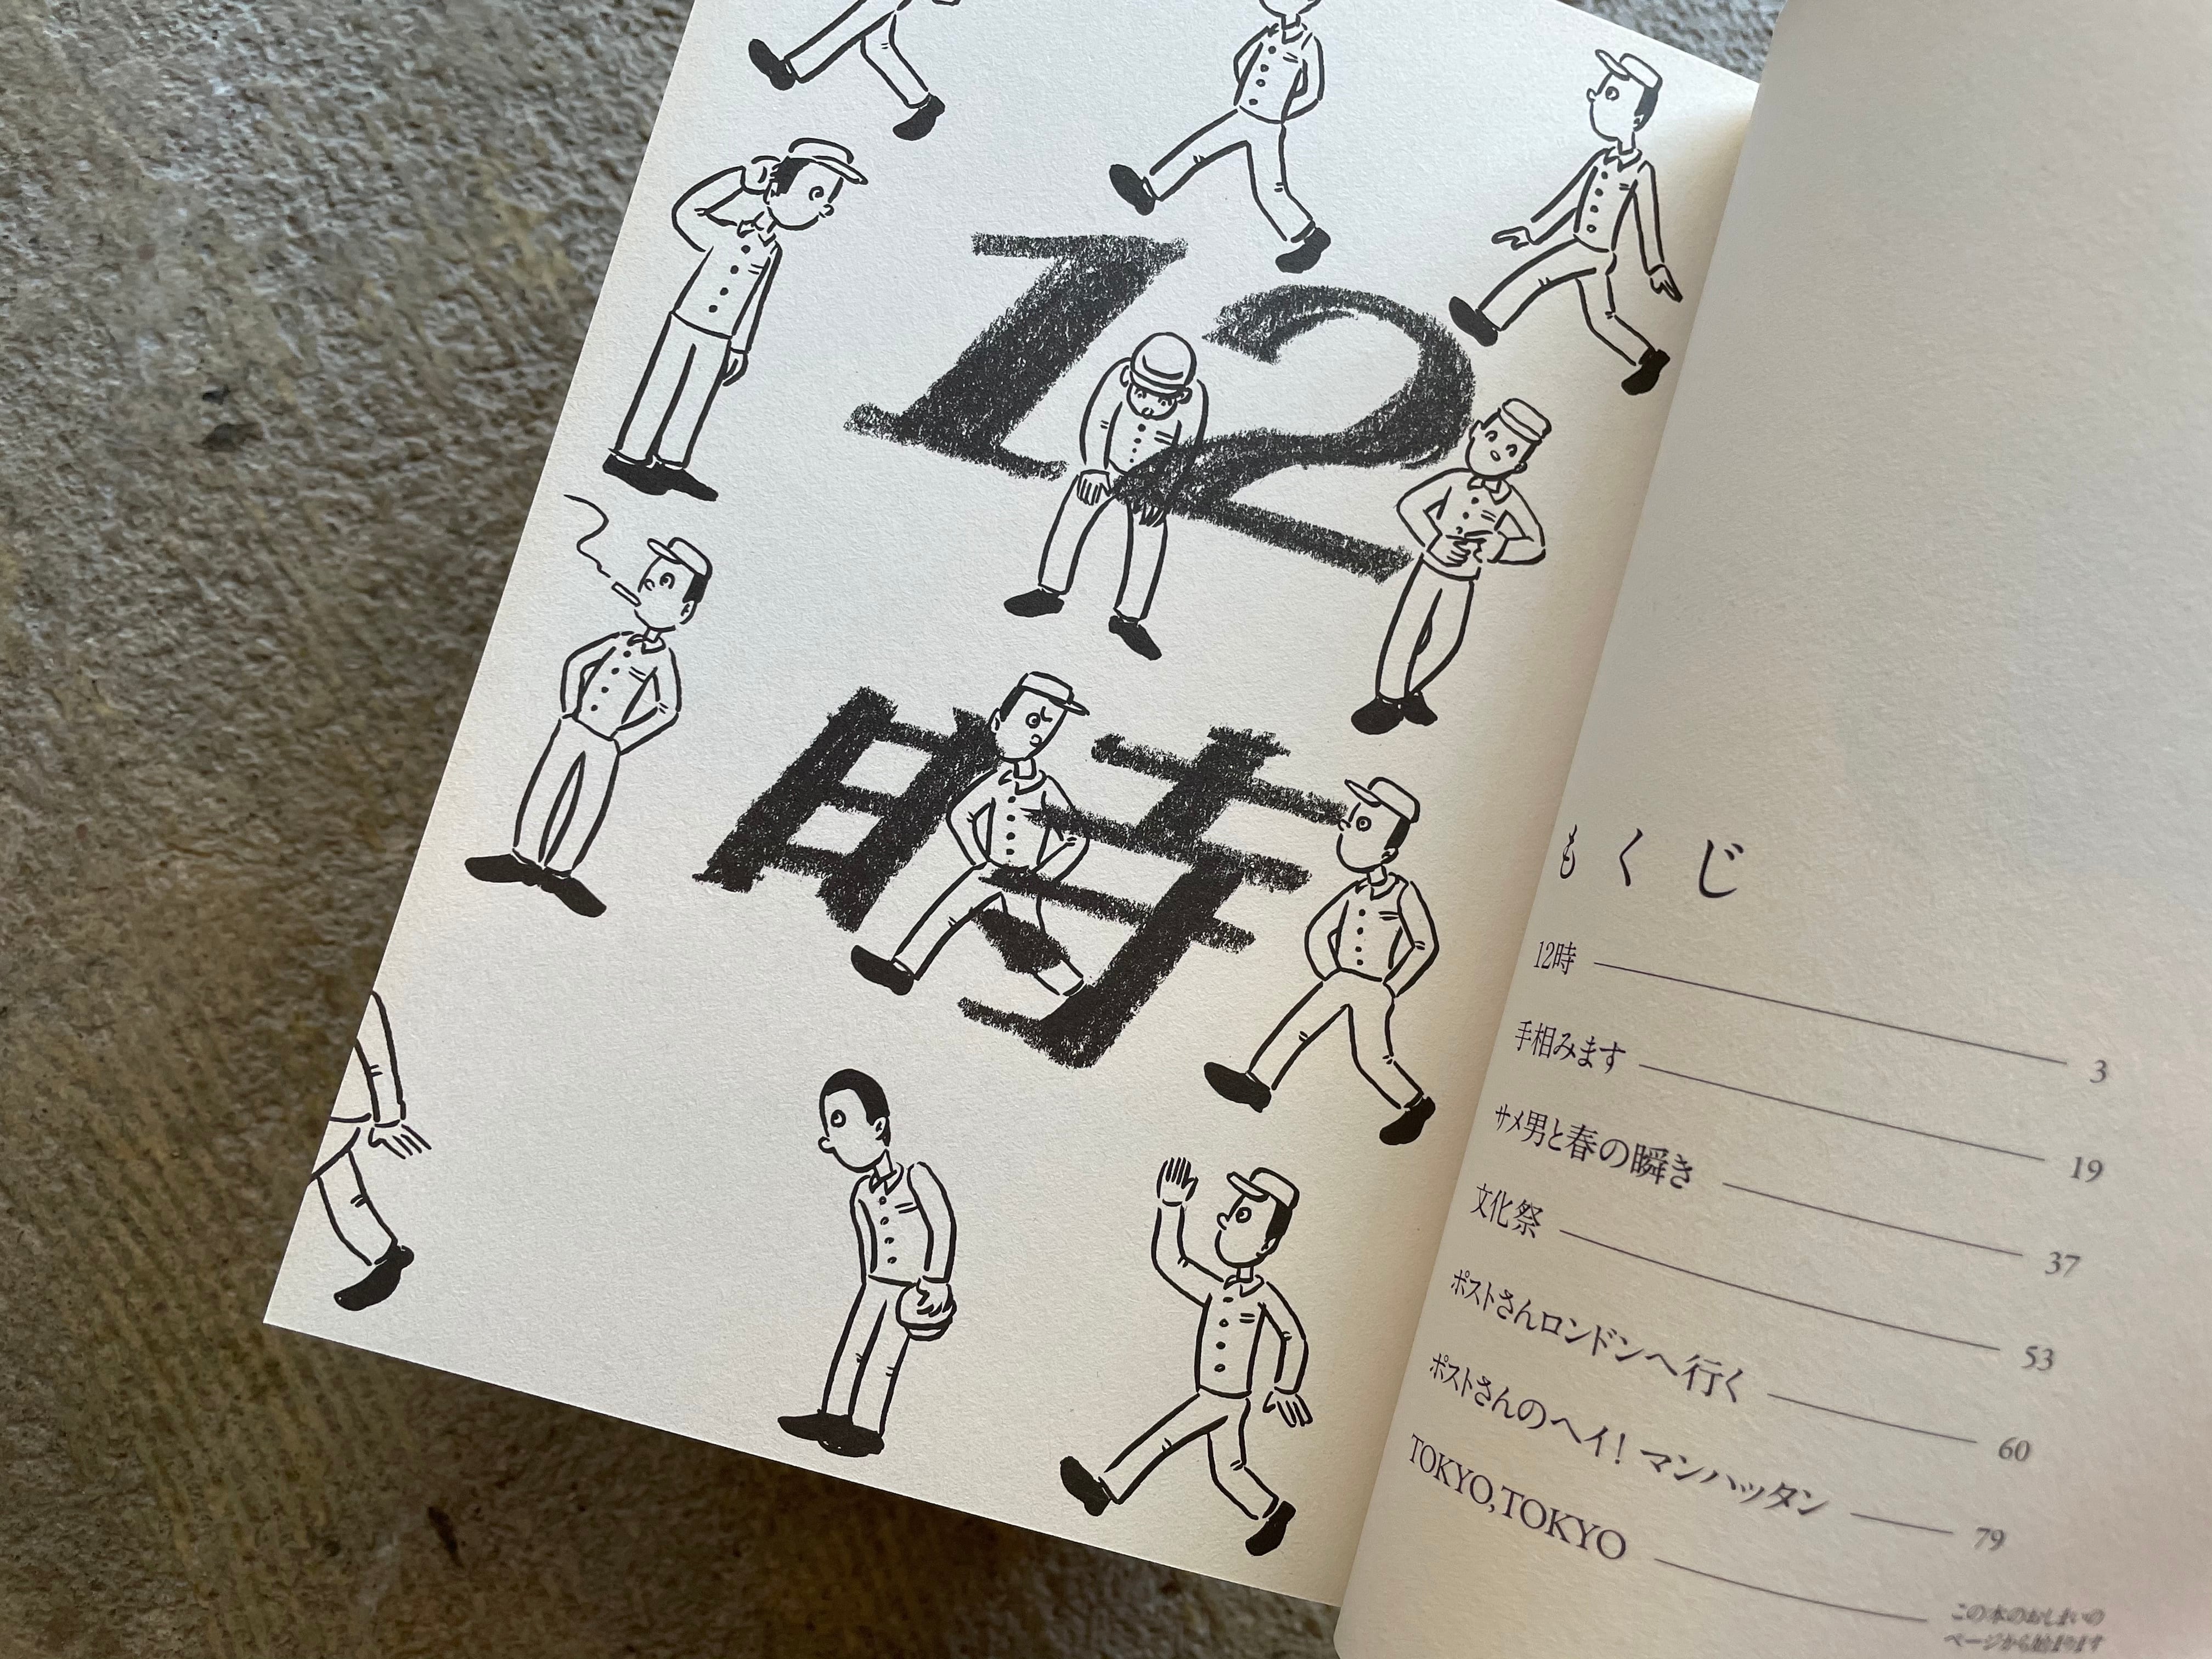 12
時
もくじ
12時 3
手相みます 19
サメ男と春の瞬き 37
文化祭 53
ポストさんロンドンへ行く 60
ポストさんのヘイ！マンハッタン 79
TOKYO,TOKYO この本のおしまいの
ページから始まります